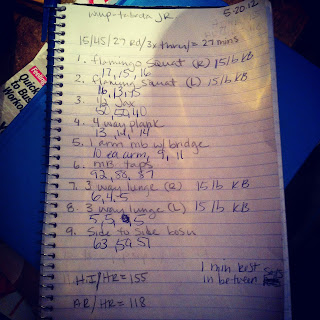 wup-tabata JR
5-20-12
15/45/27 RD/3x thru/= 27 mins
1. flamingo squat (R) 15 lb KB
17, 15, 16
2. flamingo squat (L) 15 lb KB
16, 13, 15
3. 1/2 Jax
52, 50, 40
4. 4 way plank
13, 14, 14
5. 1 arm mb w/ bridge
10 ea arm, 9, 11
6. MB taps
92, 88, 87
7. 3 way lunge (R) 15 lb KB
6, 4, 5
8. 3 way lunge (L) 15 lb KB
5, 5, 5
9. Side to Side bosu
63, 59, 57
HI/HR = 155
AR/HR = 118
1 min rest
in between
Quick
To Bu
Workou